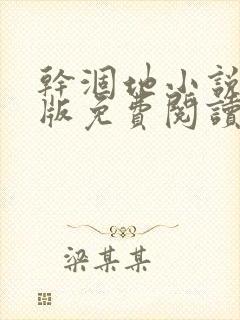 幹涸地小說
版免費閱讀
梁某某